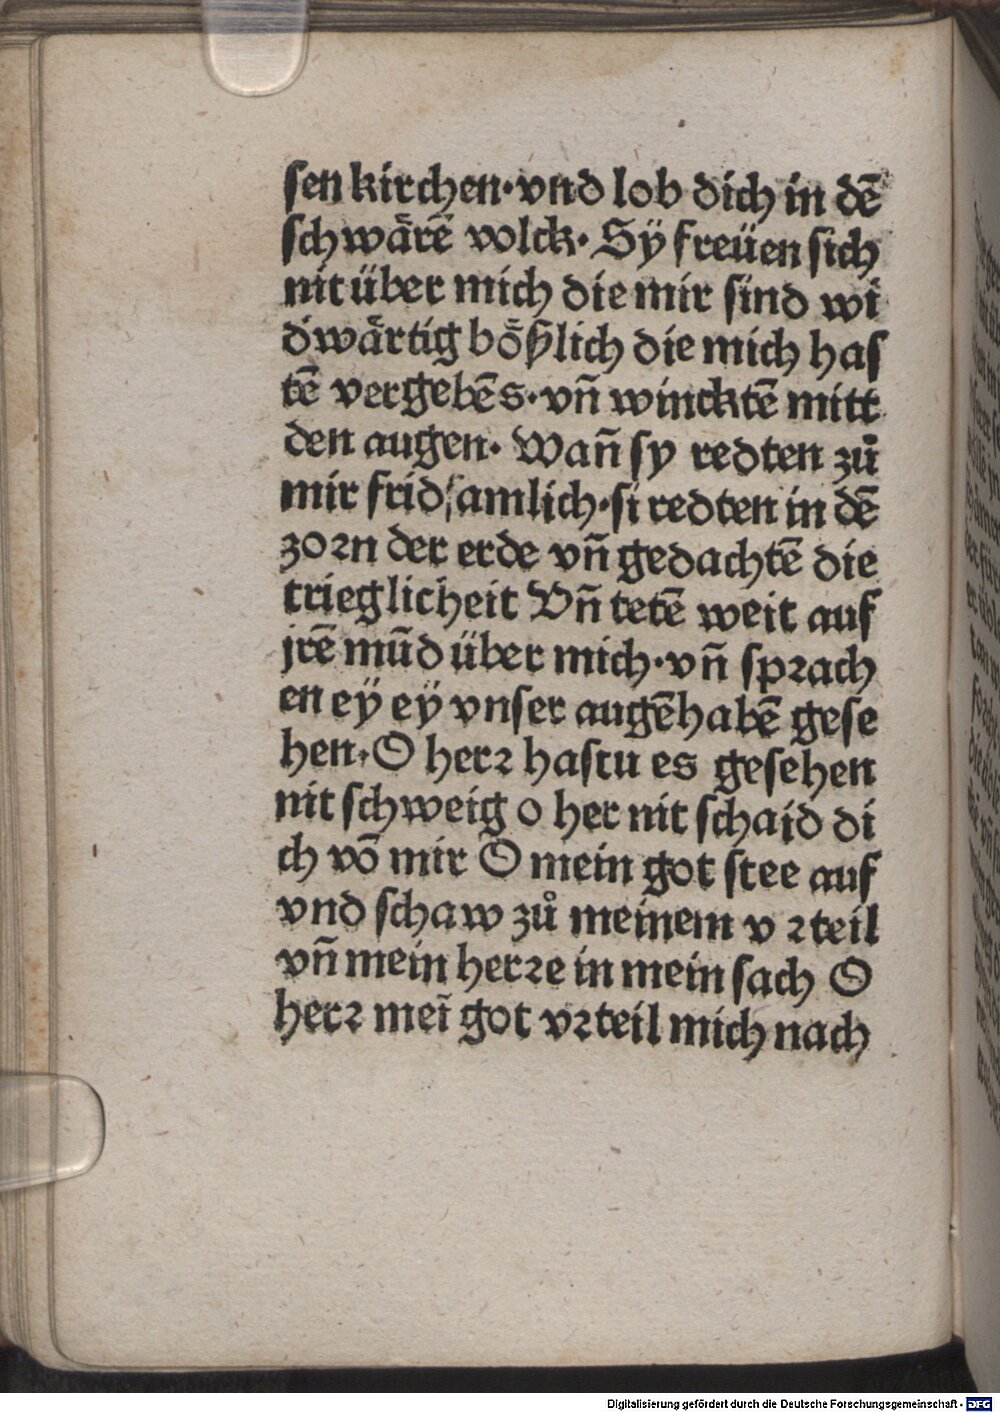 sen kirchen·vnd lob dich in dē
schwårē volck· Sÿ freüen sich
nit über mich die mir sind wi
d'wårtig bößlich die mich has
tē vergebēs·vn̄ wincktē mitt
den augen· Wan̄ sy redten zů
mir fridsamlich·si redten in dē
zorn der erde vn̄ gedachtē die
trieglicheit Vn̄ tetē weit auf
jrē mūd über mich·vn̄ sprach
en eÿ eÿ vnser augē habē gese
hen·O herr hastu es gesehen
nit schweig o her nit schaid di
ch vō mir O mein got stee auf
vnd schaw zů meinem vrteil
vn̄ mein herre in mein sach O
herr meī got vrteil mich nach
Digitalisierung gefördert durch die Deutsche Forschungsgemeinschaft - DFG